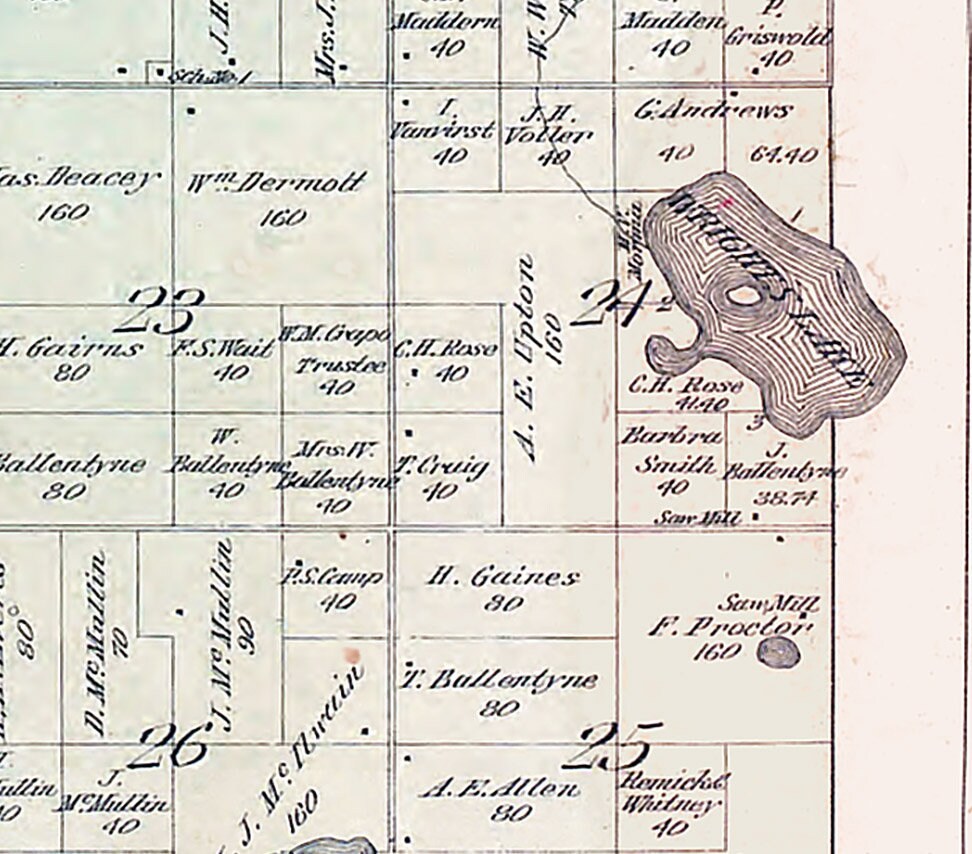 J.H.
Mrs.J.
Maddern
40
W. W
Madden
40
P.
Griswold
40
Sch. No. 1
I.
Vanvirst
40
J. H.
Voller
40
G. Andrews
40
64.40
as. Deacey
160
Wm. Dermott
160
A. E. Upton
160
WRIGHTS LAKE
1
2
3
23
24
H. Gairns
80
F. S. Wait
40
W. M. Crapo
Trustee
40
C. H. Rose
40
C. H. Rose
41.40
Ballentyne
80
W.
Ballentyne
40
Mrs. W.
Ballentyne
40
T. Craig
40
Barbra
Smith
40
J.
Ballentyne
38.74
Saw Mill
80
D. Mc Mullin
70
J. Mc Mullin
90
P. S. Camp
40
H. Gaines
80
Saw Mill
F. Proctor
160
T. Ballentyne
80
26
25
J. Mc Ilwain
160
ullin
J.
McMullin
40
A. E. Allen
80
Remick &
Whitney
40